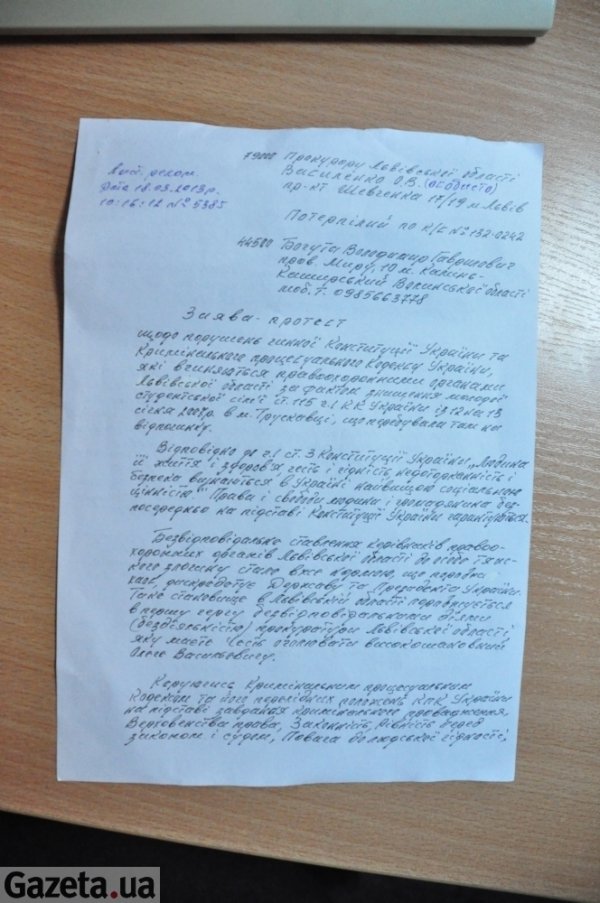 79000 Прокурору Львівської області
Василенко О.В. (особисто)
пр-кт Шевченка 17/19 м. Львів
Лист. реком.
Дата 18.03.2013р.
10:16:12 № 5385
Потерпілий по к/с № 132-0242
44500 Богута Володимир
пров. Миру, 10 м. Камінь-
Каширський Волинської області
моб. т. 0985663778
Заява-протест
щодо порушень чинної Конституції України та
Кримінального процесуального Кодексу України,
які вчиняються правоохоронними органами
Львівської області за фактом знищення молодої
студентської сім'ї ст. 115 ч.1 КК України із 12 на 13
січня 2007р. в м. Трускавці, що перебували там на
відпочинку.
Відповідно до ч.1 ст. 3 Конституції України „Людина
її життя і здоров'я, честь і гідність недоторканність і
безпека визнаються в Україні найвищою соціальною
цінністю." Права і свободи людини і громадянина без-
посередньо на підставі Конституції України гарантуються.
Безвідповідальне ставлення керівників правоо-
хоронних органів Львівської області до особо тяжк-
ого злочину стало вже нормою, що
дискредитує Державу та Президента України.
Таке становище в Львівській області
в першу чергу безвідповідальними діями
(бездіяльністю) прокуратури Львівської області,
яку маєте Честь очолювати високошановний
Олеге Васильовичу.
Керуючись Кримінальним процесуальним
Кодексом та його перехідних положень КПК України
на підставі завдання кримінального провадження,
Верховенства права, Законність, Рівність перед
законом і судом, Повага до людської гідності,
Gazeta.ua